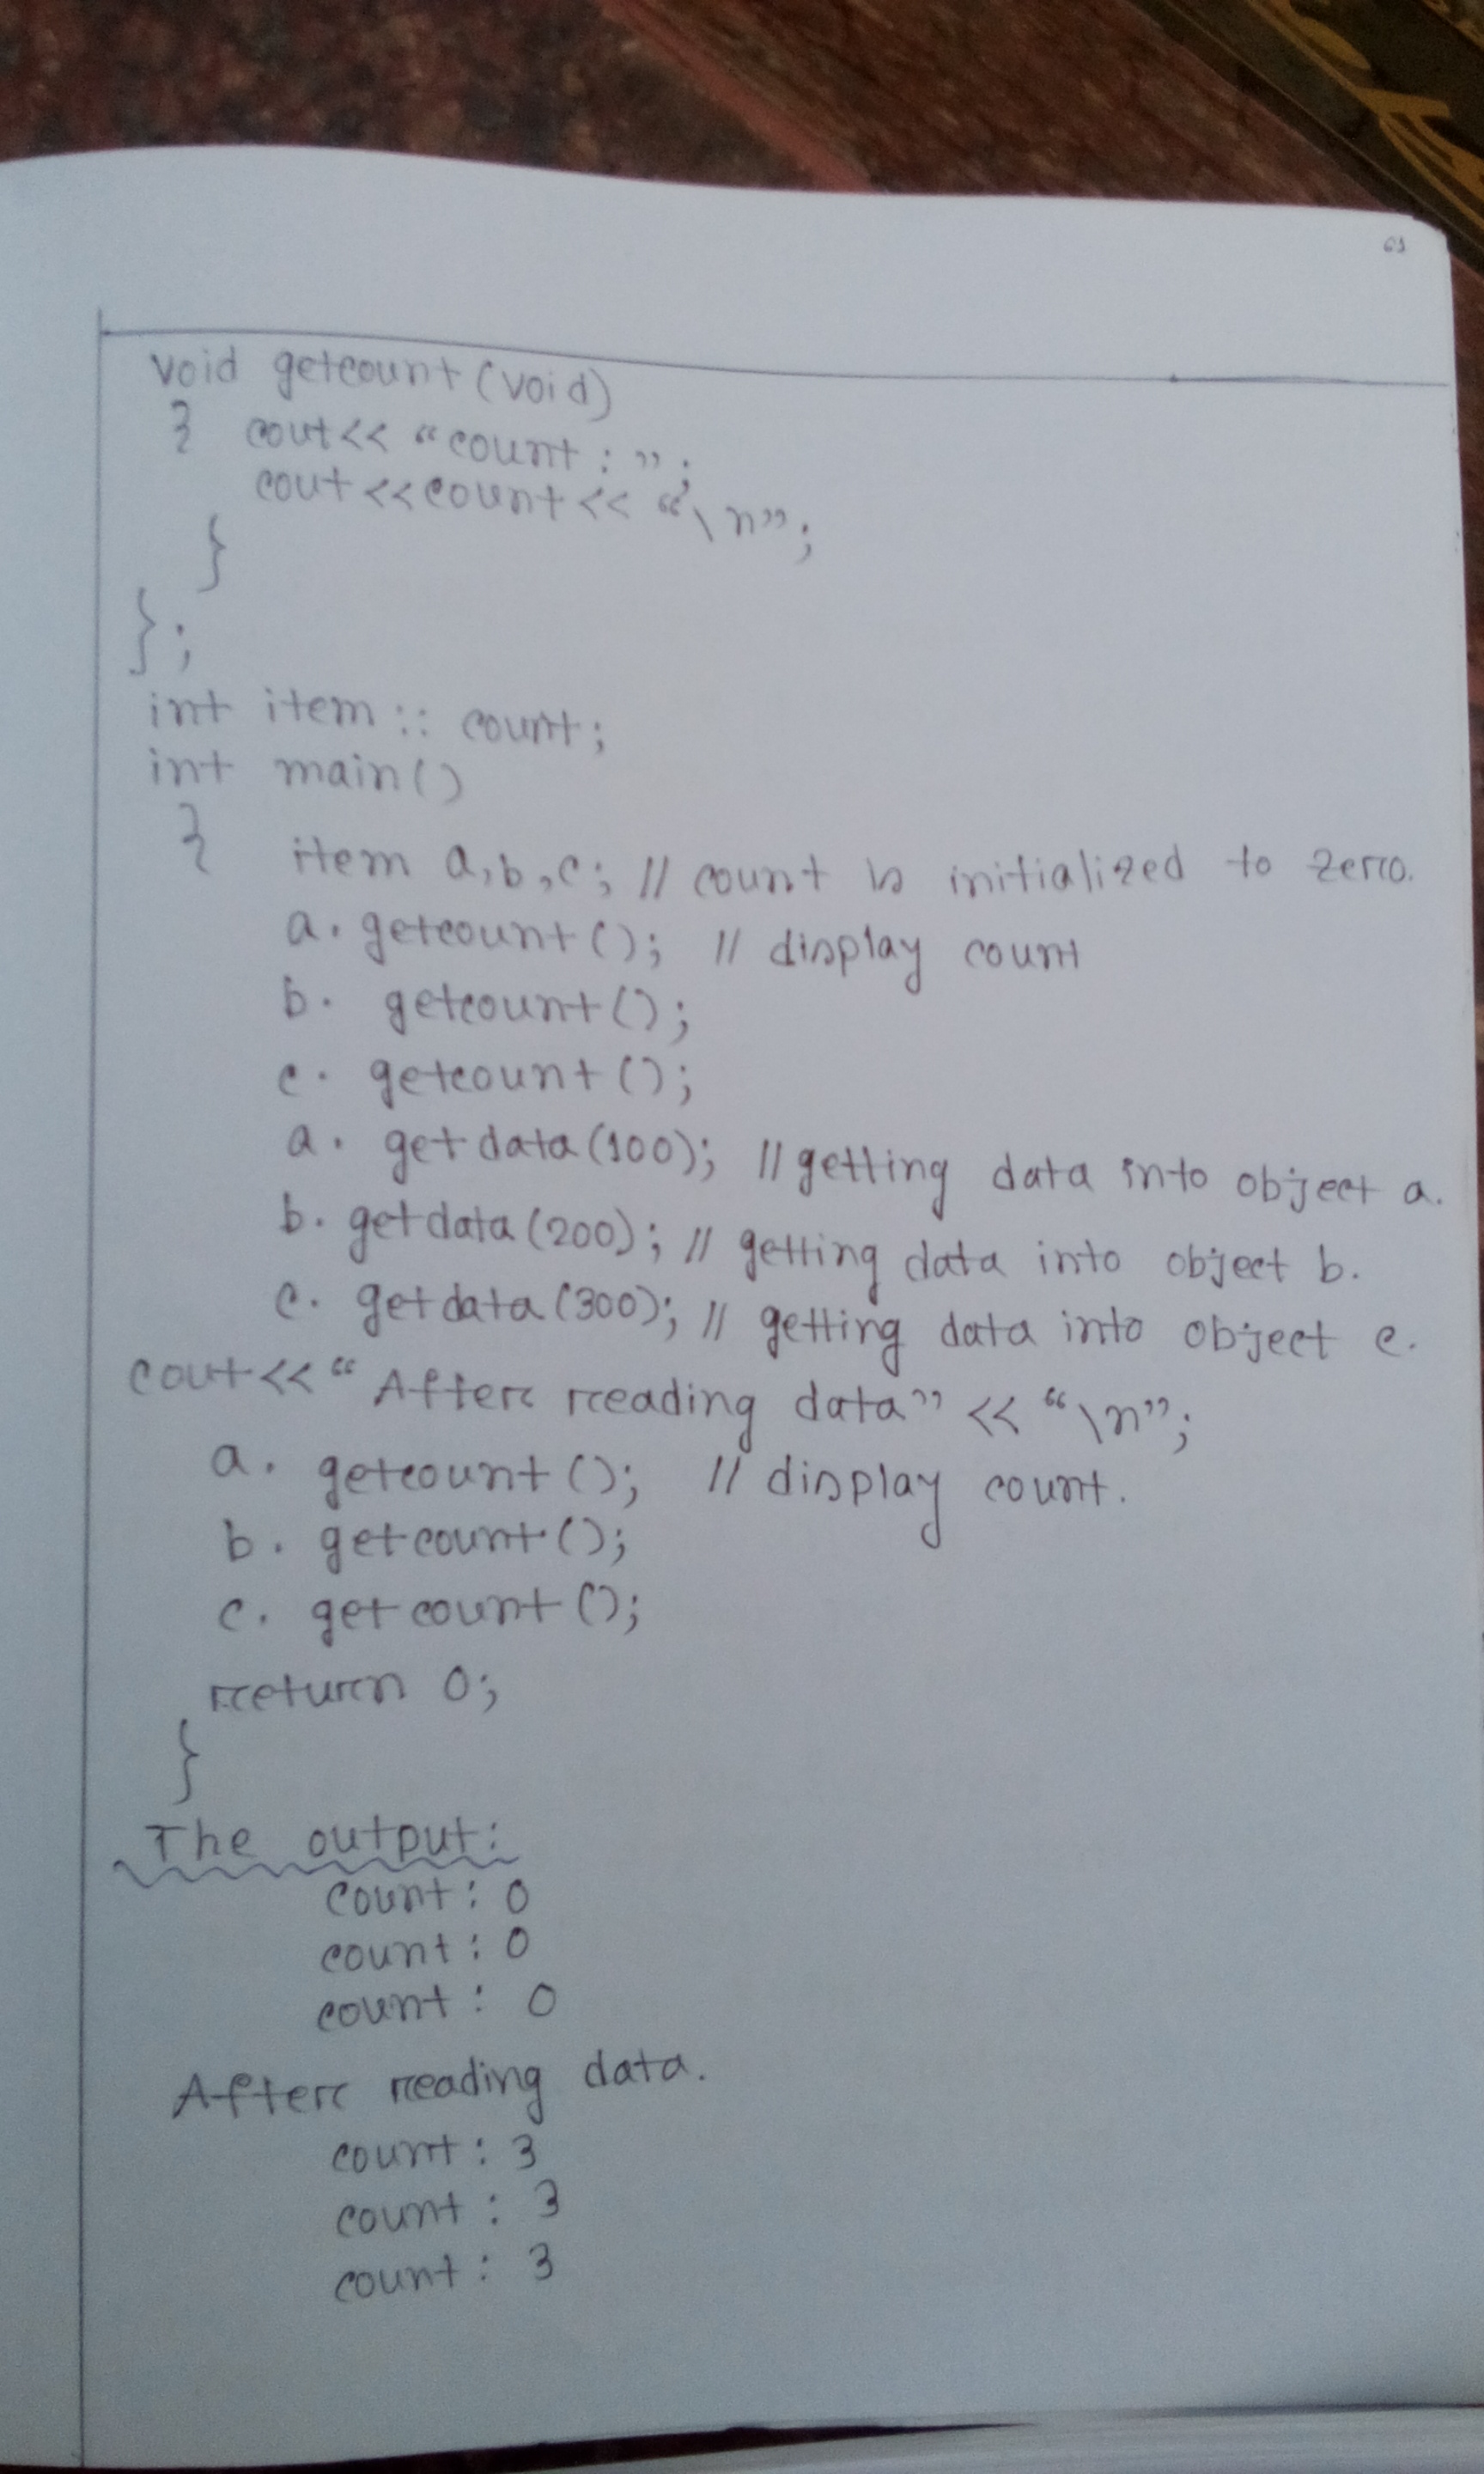 63
void getcount(void)
{ cout<< "count : ";
cout<<count<< "\n";
}
};
int item :: count;
int main()
{ item a,b,c; // count is initialized to zero.
a. getcount(); // display count
b. getcount();
c. getcount();
a. getdata(100); // getting data into object a.
b. getdata(200); // getting data into object b.
c. getdata(300); // getting data into object c.
cout<< "After reading data" << "\n";
a. getcount(); // display count.
b. getcount();
c. getcount();
return 0;
}
The output:
count: 0
count: 0
count: 0
After reading data.
count: 3
count: 3
count: 3